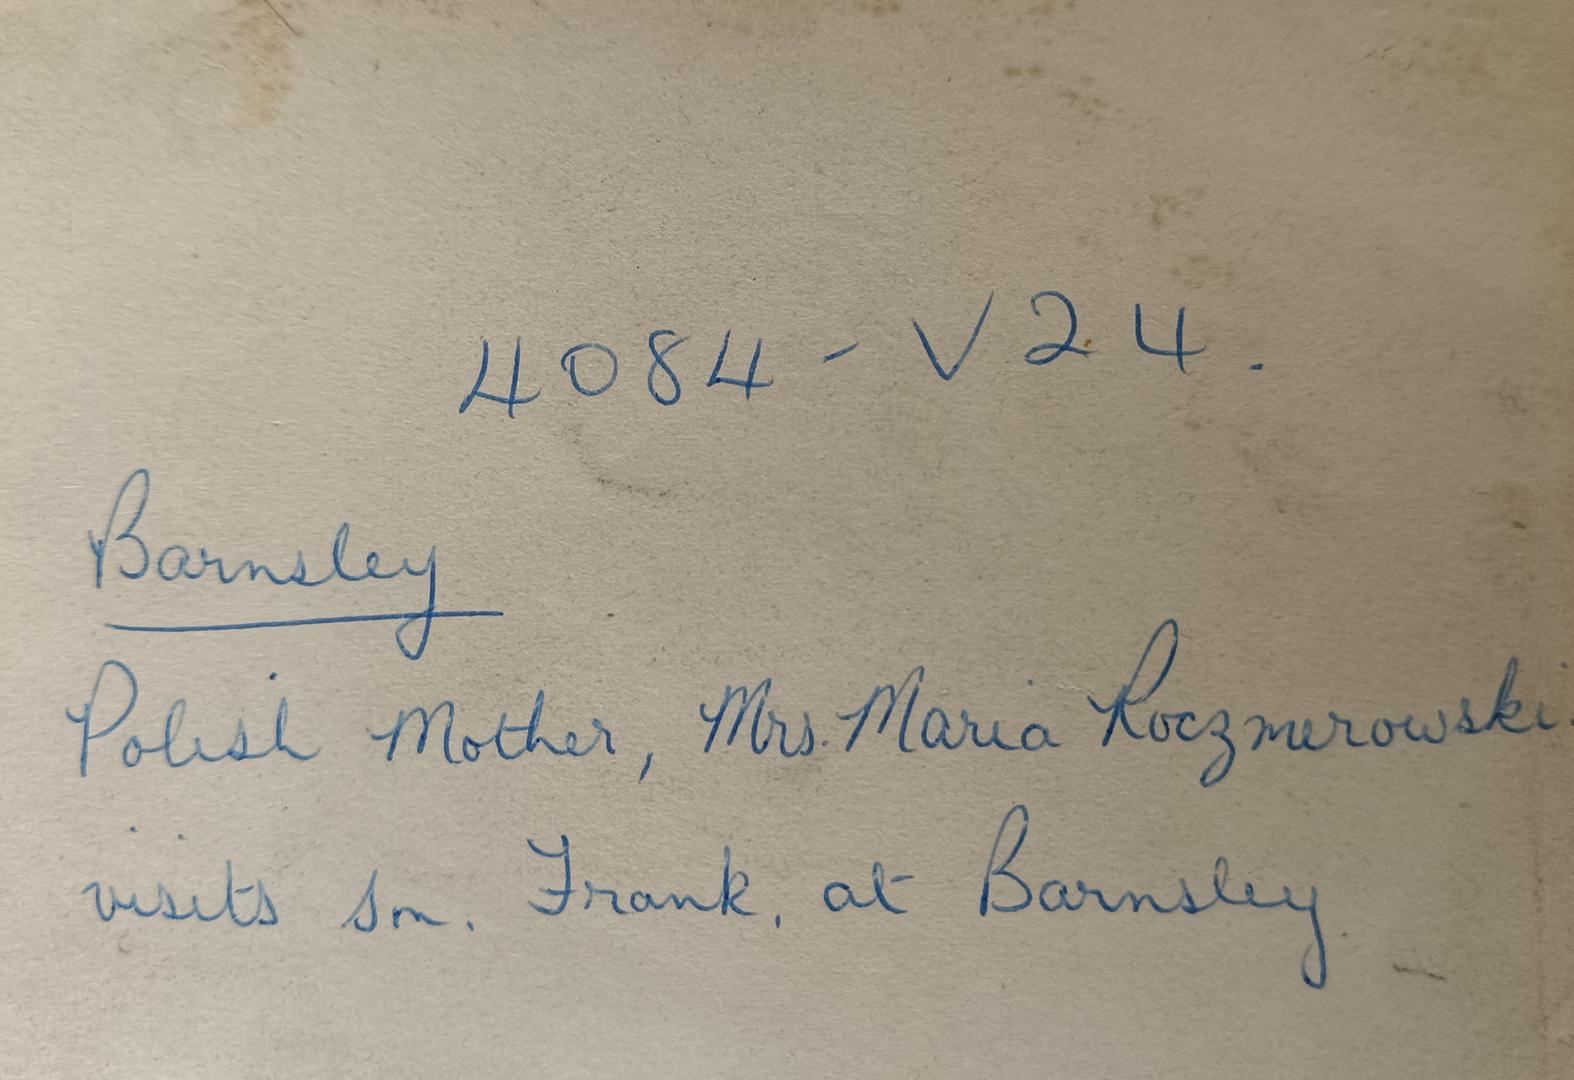 4084 - V24.
Barnsley
Polish Mother, Mrs. Maria Roczmerowski.
visits son. Frank, at Barnsley